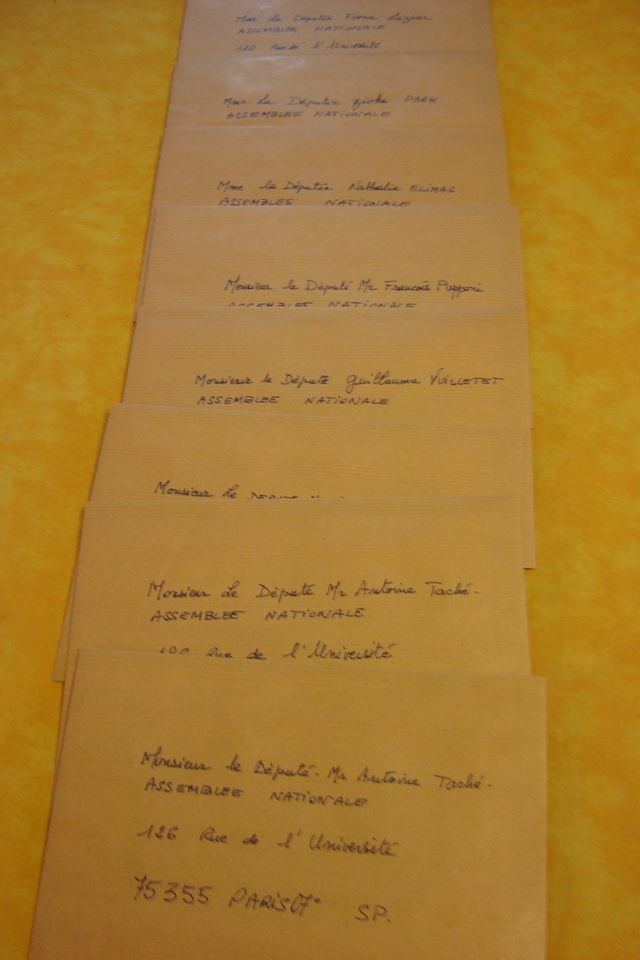 Mme La Députée Fiona Lazaar
ASSEMBLEE NATIONALE
126 Rue de l'Université
Mme La Députée Zivka PARK
ASSEMBLEE NATIONALE
Mme la Députée Nathalie ELIMAS.
ASSEMBLEE NATIONALE
Monsieur le Député Mr François Pupponi
ASSEMBLEE NATIONALE
Monsieur le Députe Guillaume VUILLETET
ASSEMBLEE NATIONALE
Monsieur Le
Monsieur Le Député Mr Antoine Taché.
ASSEMBLEE NATIONALE
126 Rue de l'Université
Monsieur le Député. Mr Antoine Taché.
ASSEMBLEE NATIONALE
126 Rue de l'Université
75355 PARIS 07° SP.